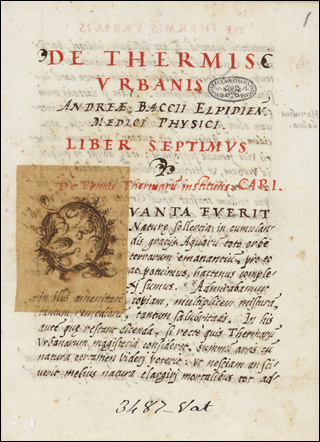 1
DE THERMIS
VRBANIS
ANDREÆ BACCII ELPIDIEN.
MEDICI PHYSICI.
LIBER SEPTIMVS
De Primis Thermarũ institutis CAP I.
Q
VANTA FVERIT
Naturæ sollertia in cumulan-
dis gratijs Aquarũ toto orbe
terrarum emanantiũ, pro eo
ac potuimus, hactenus comple-
Admirabamur
in illis copiam, multiplicem
tandem remediorũ, tantam salubritatem. In his
autẽ quæ restant dicenda, si recte quis Thermarũ
Vrbanarum magisteria consideret, summũ artis cũ
natura certamen videri poterit: ut nesciam an
uerit melius natura elargiri mortalibus tot
3487 Vat